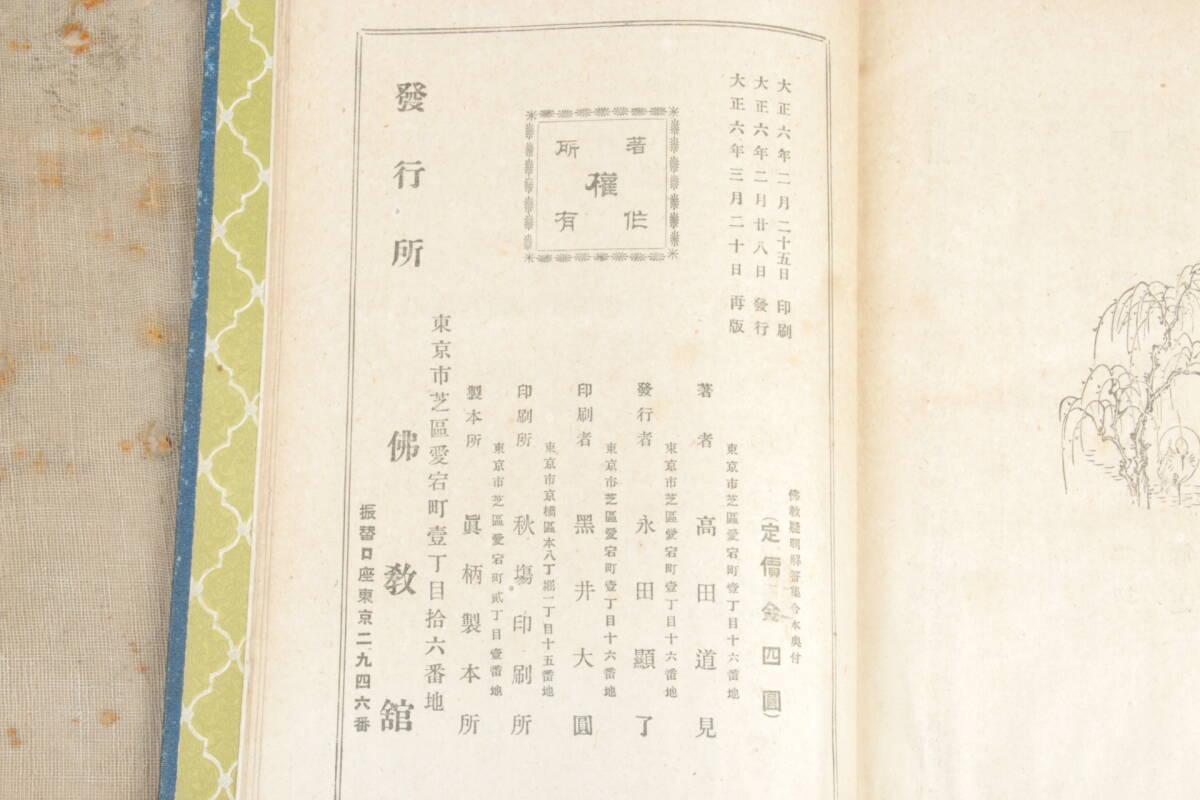 大正六年二月二十五日 印刷
大正六年二月廿八日 發行
大正六年三月二十日 再版
著作權所有
佛敎疑問解答集合本奧付
(定價金四圓)
東京市芝區愛宕町壹丁目十六番地
著者 高田道見
東京市芝區愛宕町壹丁目十六番地
發行者 永田顯了
東京市芝區愛宕町壹丁目十六番地
印刷者 黑井大圓
東京市京橋區本八丁堀一丁目十五番地
印刷所 秋塲印刷所
東京市芝區愛宕町貳丁目壹番地
製本所 眞柄製本所
東京市芝區愛宕町壹丁目拾六番地
發行所 佛敎館
振替口座東京二九四六番